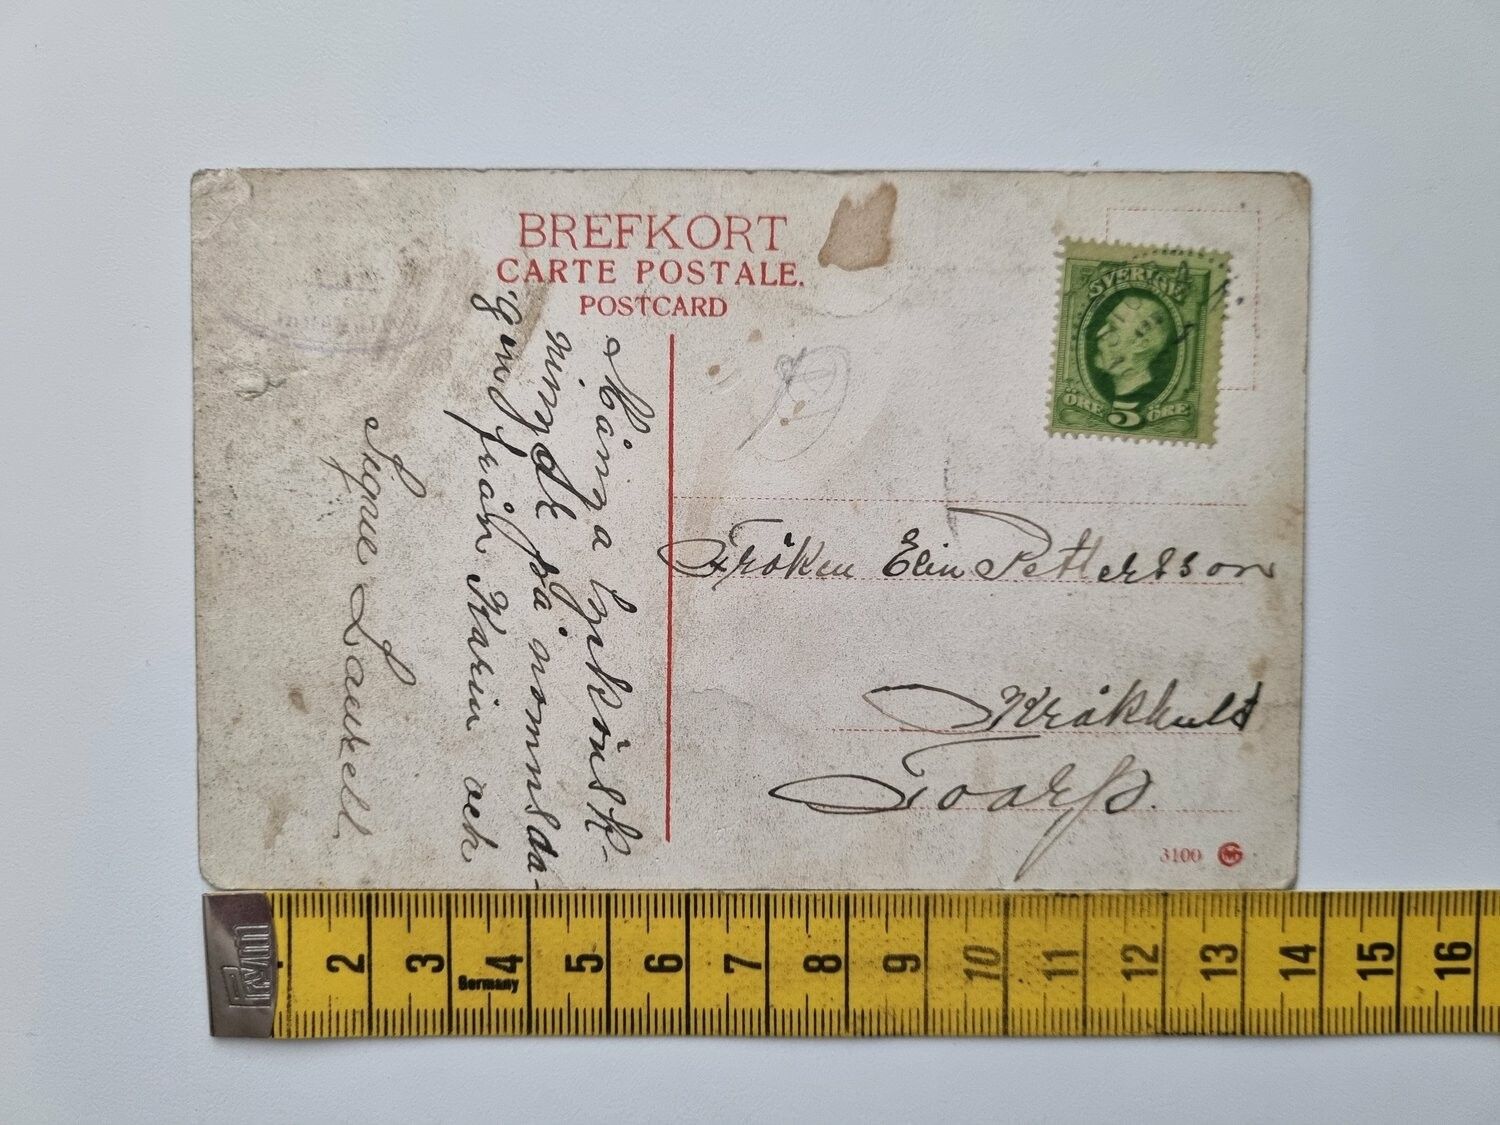 BREFKORT
CARTE POSTALE.
POSTCARD
SVERIGE
ÖRE 5 ÖRE
Många lyckönsk-
ningar på namnsda-
gen från Karin och
Signe
Fröken Elin Pettersson
Kråkhult
Toarp.
3100
Prym
2 3 4 5 6 7 8 9 10 11 12 13 14 15 16
Germany